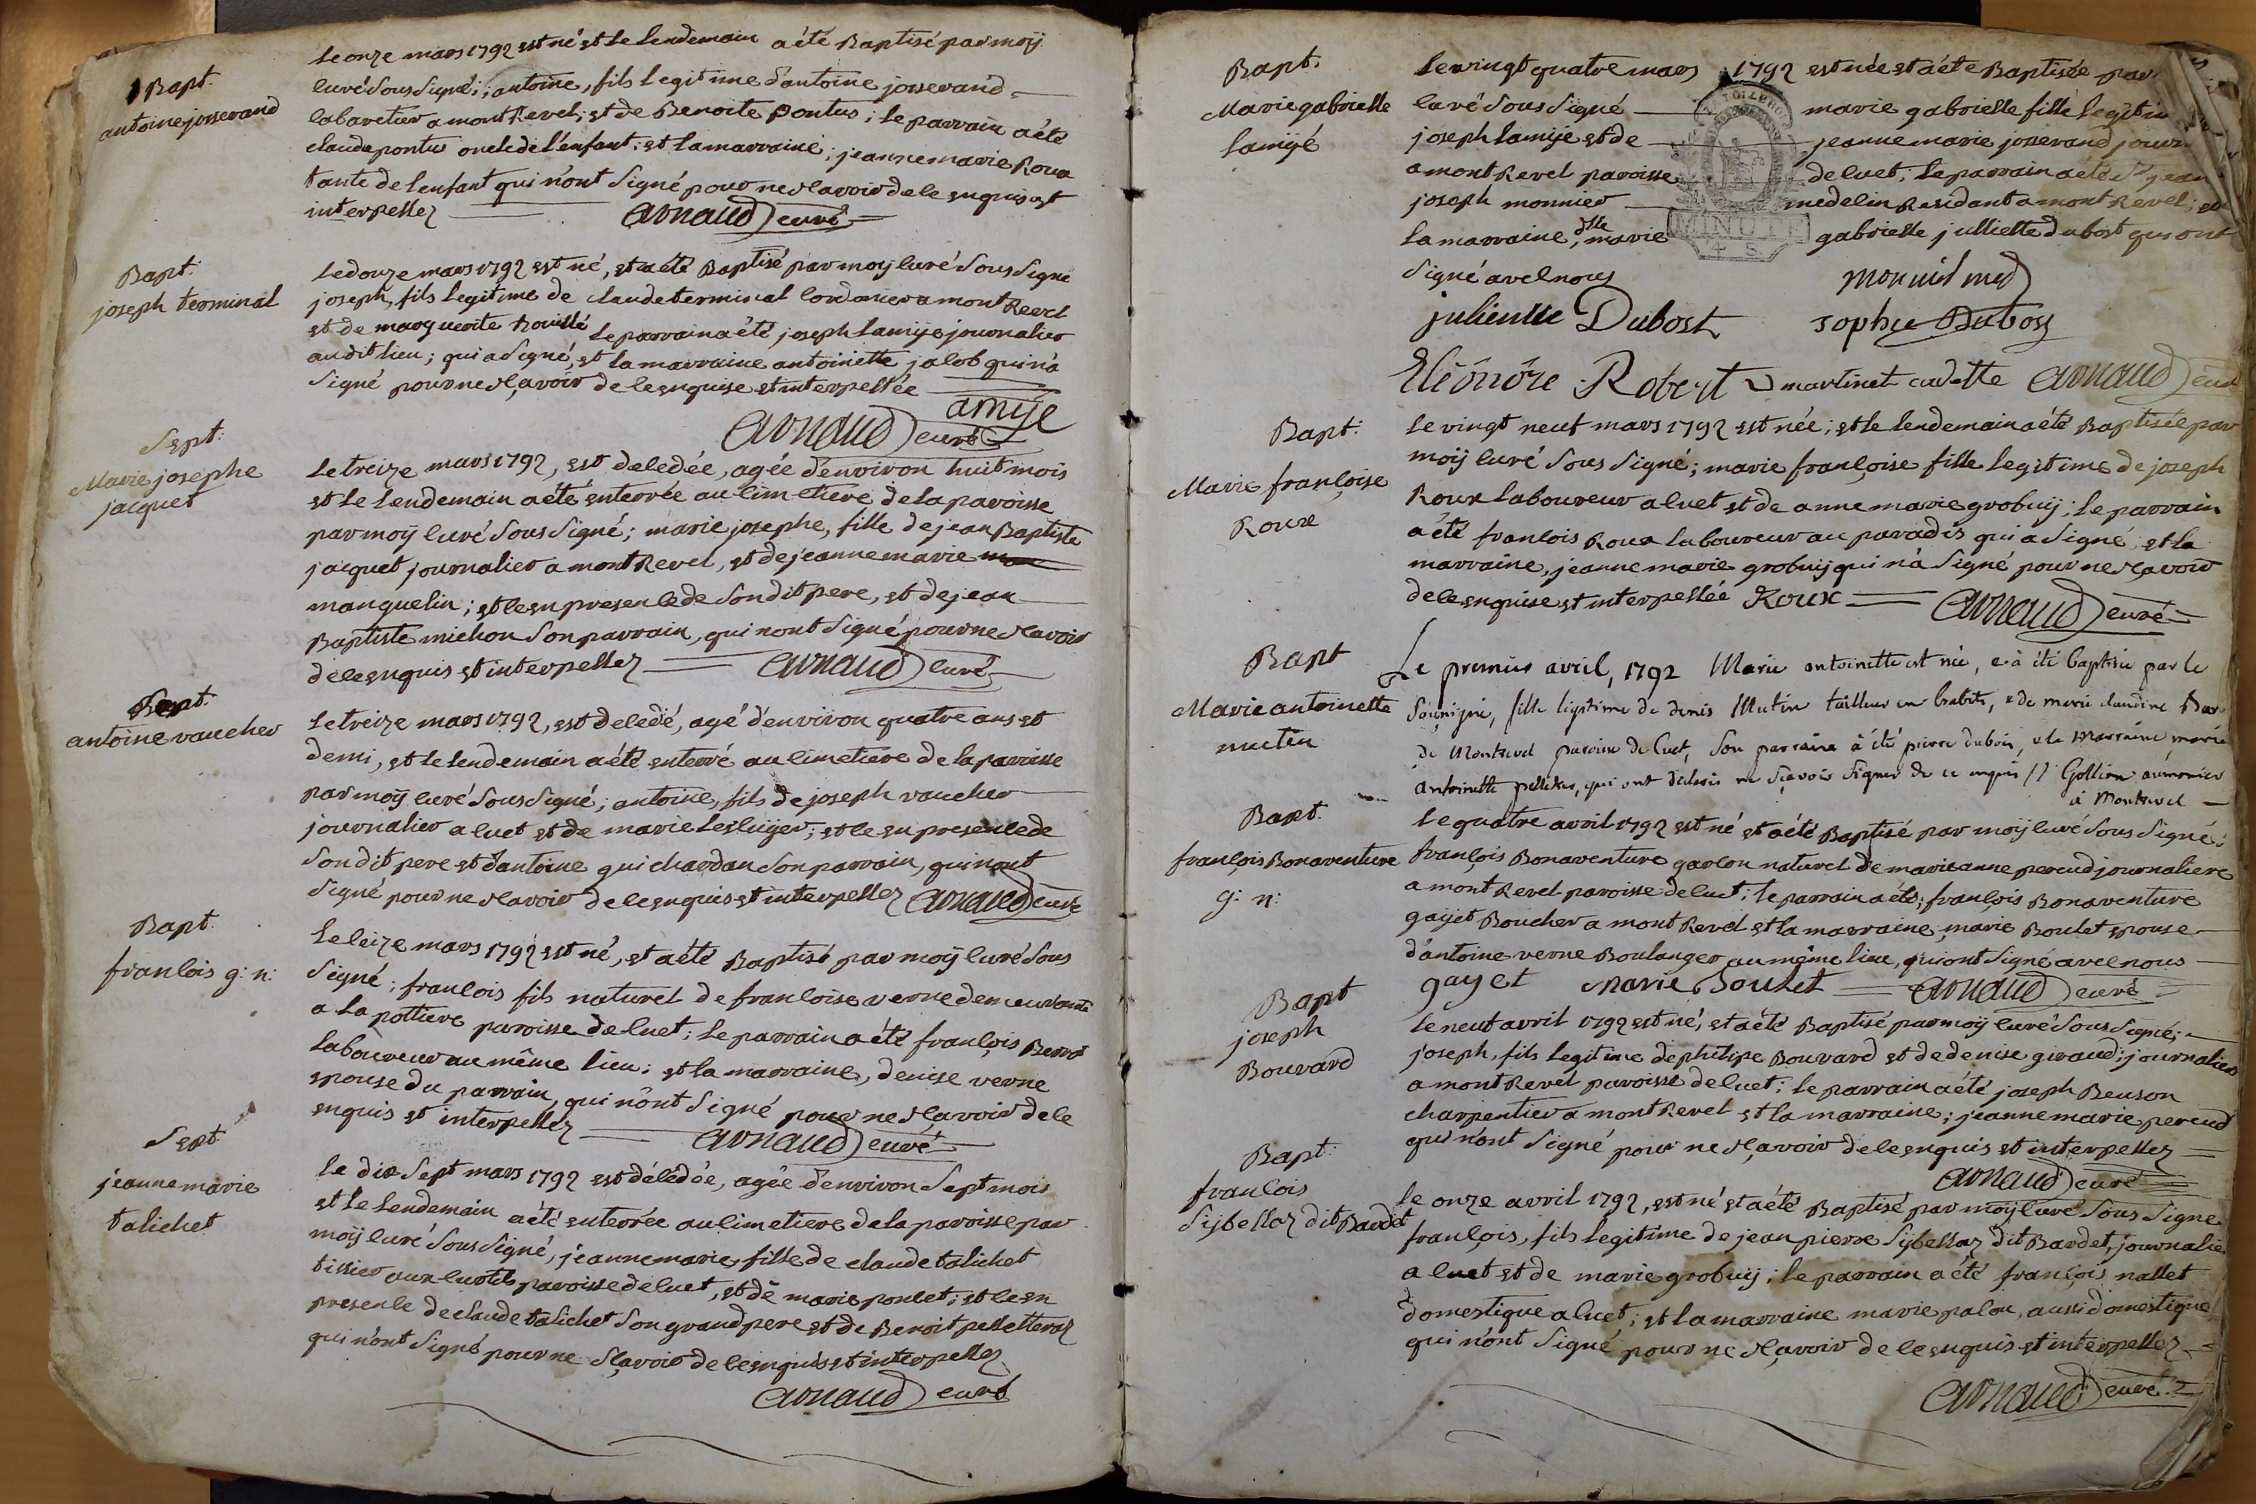 Bapt.
antoine josserand
le onze mars 1792 est né et le lendemain a été Baptisé par moÿ
curé sous signé; antoine, fils legitime d'antoine josserand
cabaretier a montRevel; et de Benoite Pontus; le parrain a été
claude pontus oncle de l'enfant; et la marraine, jeanne marie Roux
tante de lenfant qui n'ont signé pour ne sçavoir de ce enquis et
interpellez arnaud curé
Bapt.
joseph terminal
le douze mars 1792 est né, et a été Baptisé par moÿ curé sous signé
joseph, fils legitime de claude terminal cordonier a montRevel
et de marguerite trouillé le parrain a été joseph lamÿe journalier
au dit lieu; qui a signé, et la marraine antoinette jacob qui n'a
signé pour ne sçavoir de ce enquise et interpellée
amÿe
arnaud curé
Sept.
Marie josephe
jacquet
le treize mars 1792, est decedée, agée d'environ huit mois
et le lendemain a été enterrée au cimetiere de la paroisse
par moÿ curé sous signé; marie josephe, fille de jean Baptiste
jacquet journalier a montRevel, et de jeanne marie
manguelin; et ce en presence de son dit pere, et de jean
Baptiste michon son parrain, qui n'ont signé pour ne sçavoir
de ce enquis et interpellez arnaud curé
Sept.
antoine vaucher
le treize mars 1792, est decedé, agé d'environ quatre ans et
demi, et le lendemain a été enterré au cimetiere de la paroisse
par moÿ curé sous signé; antoine, fils de joseph vaucher
journalier a cuet et de marie lescuÿer; et ce en presence de
son dit pere et d'antoine guichardan son parrain, qui n'ont
signé pour ne sçavoir de ce enquis et interpellez arnaud curé
Bapt.
francois g: n:
le seize mars 1792 est né, et a été Baptisé par moÿ curé sous
signé; francois fils naturel de francoise verne demeurante
a la pottiere paroisse de cuet; le parrain a été françois
laboureur au même lieu; et la marraine, denise verne
epouse du parrain, qui n'ont signé pour ne sçavoir de ce
enquis et interpellez arnaud curé
Sept.
jeanne marie
talichet
le dix sept mars 1792 est décédée, agée d'environ sept mois
et le lendemain a été enterrée au cimetiere de la paroisse par
moÿ curé sous signé, jeanne marie, fille de claude talichet
tissier aux curtils paroisse de cuet, et de marie poncet; et ce en
presence de claude talichet son grand pere et de Benoit pelletteraz
qui n'ont signé pour ne sçavoir de ce enquis et interpellez
arnaud curé
Bapt.
Marie gabrielle
lamÿe
le vingt quatre mars 1792 est née et a été Baptisée par
curé sous signé marie gabrielle fille legitim
joseph lamÿe et de jeanne marie josserand jour
a montRevel paroisse de cuet; le parrain a été Sr jean
joseph monnier medecin Residant a montRevel; et
la marraine, dlle marie gabrielle julliette dubost qui ont
MINUTE
signé avec nous
julienne Dubost sophie Dubost
Eléonôre Robert martinet cadette arnaud curé
Bapt.
Marie françoise
Roux
le vingt neuf mars 1792 est née; et le lendemain a été Baptisée par
moÿ curé sous signé; marie françoise fille legitime de joseph
Roux laboureur a cuet et de anne marie grobuÿ; le parrain
a été francois Roux laboureur au paradis qui a signé, et la
marraine, jeanne marie grobuÿ qui n'a signé pour ne sçavoir
de ce enquise et interpellée Roux arnaud curé
Bapt
Marie antoinette
mutin
Le premier avril, 1792 Marie antoinette est née, e a été baptisée par le
sousigné, fille legitime de denis Mutin tailleur en habits, e de marie claudine
de Montrevel paroisse de Cuet, son parrain à été pierre dubois, e la Marraine marie
antoinette pelletier, qui ont declaré ne sçavoir signer de ce enquis // Gollion aumonier
à Montrevel
Bapt.
françois Bonaventure
g: n:
le quatre avril 1792 est né et a été Baptisé par moÿ curé sous signé;
françois Bonaventure garcon naturel de marie anne perend journaliere
a montRevel paroisse de cuet; le parrain a été, françois Bonaventure
gaÿet Boucher a montRevel et la marraine, marie Boulet epouse
d'antoine verne Boulanger au même lieu, qui ont signé avec nous
gayet Marie Boulet arnaud curé
Bapt
joseph
Bouvard
le neuf avril 1792 est né, et a été Baptisé par moÿ curé sous signé;
joseph, fils legitime de philipe Bouvard et de denise giraud; journalier
a montRevel paroisse de cuet; le parrain a été joseph Beuson
charpentier a montRevel et la marraine; jeanne marie perend
qui n'ont signé pour ne sçavoir de ce enquis et interpellez
arnaud curé
Bapt.
francois
Sÿbellaz dit Bardet
le onze avril 1792, est né et a été Baptisé par moÿ curé sous signé
françois, fils legitime de jean pierre Sÿbellaz dit Bardet, journalie
a cuet et de marie grobuÿ; le parrain a été françois nallet
domestique a cuet; et la marraine marie palou, aussi domestique
qui n'ont signé pour ne sçavoir de ce enquis et interpellez
arnaud curé